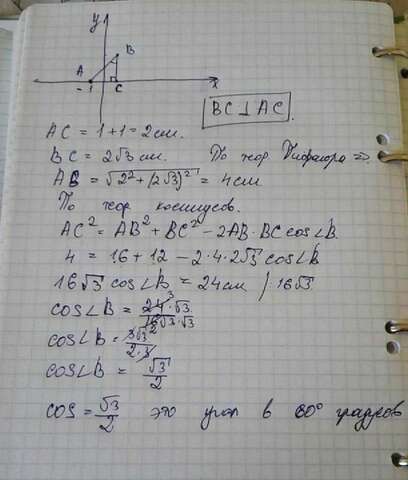 y
B
A
-1
C
x
BC ⊥ AC.
AC = 1+1 = 2 см.
BC = 2√3 см. По теор. Пифагора =>
AB = √2² + (2√3)² = 4 см
По теор косинусов.
AC² = AB² + BC² - 2AB · BC cos∠B.
4 = 16 + 12 - 2·4·2√3 cos∠B
16√3 cos∠B = 24 см / 16√3
cos∠B = 24³·√3 / 16√3·√3 2
cos∠B = 3√3 / 2·3
cos∠B = √3 / 2
cos = √3 / 2 это угол в 60° градусов